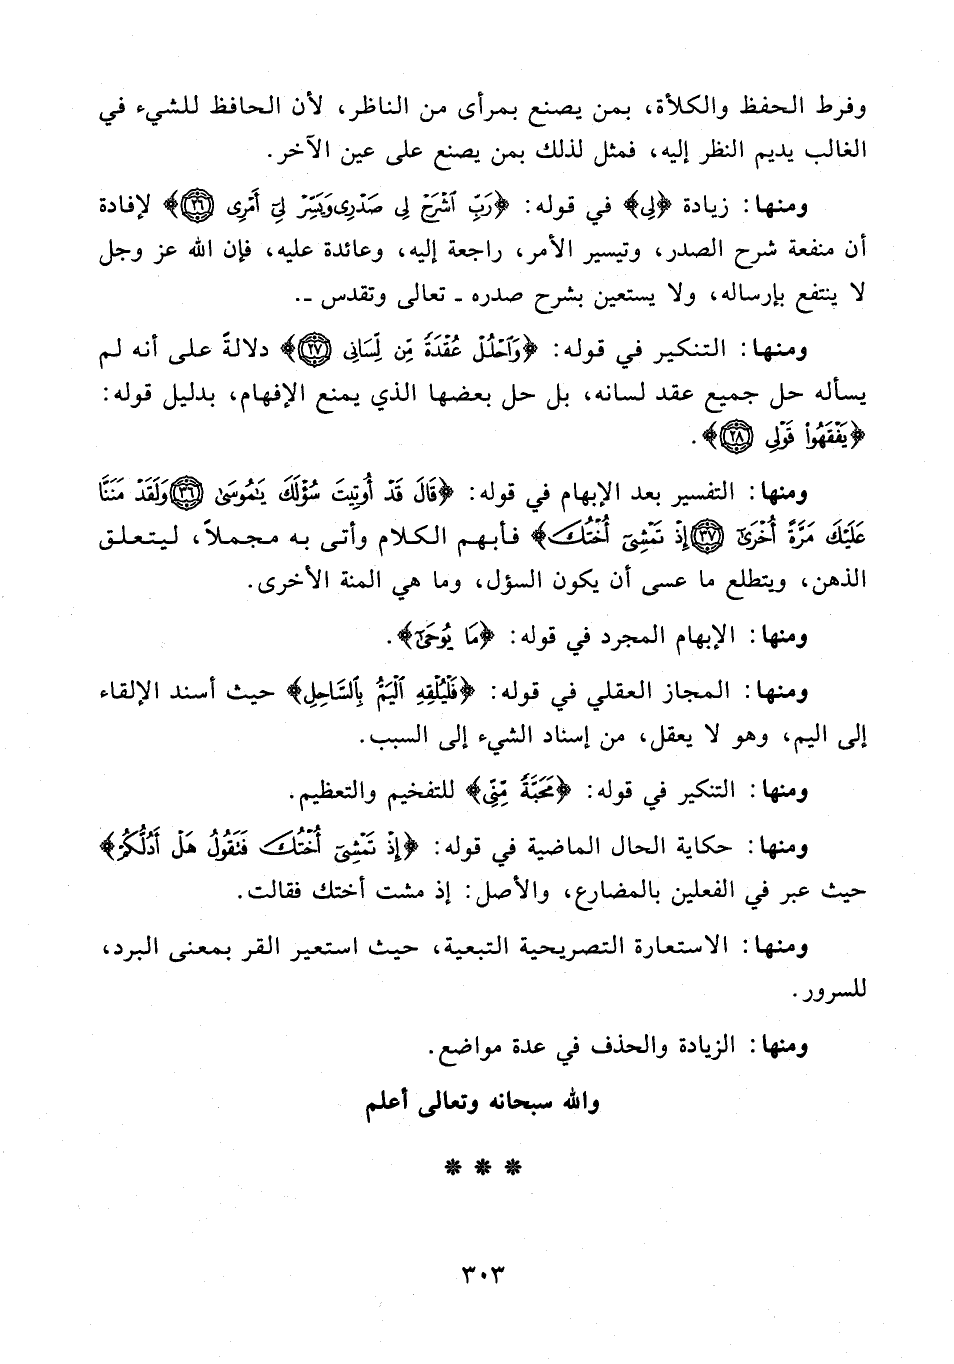 وفرط الحفظ والكلأة، بمن يصنع بمرأى من الناظر، لأن الحافظ للشيء في
الغالب يديم النظر إليه، فمثل لذلك بمن يصنع على عين الآخر.
ومنها: زيادة ﴿لِي﴾ في قوله: ﴿رَبِّ ٱشْرَحْ لِي صَدْرِى وَيَسِّرْ لِيٓ أَمْرِى ٢٦﴾ لإفادة
أن منفعة شرح الصدر، وتيسير الأمر، راجعة إليه، وعائدة عليه، فإن الله عز وجل
لا ينتفع بإرساله، ولا يستعين بشرح صدره - تعالى وتقدس -.
ومنها: التنكير في قوله: ﴿وَٱحْلُلْ عُقْدَةً مِّن لِّسَانِى ٢٧﴾ دلالةً على أنه لم
يسأله حل جميع عقد لسانه، بل حل بعضها الذي يمنع الإفهام، بدليل قوله:
﴿يَفْقَهُوا۟ قَوْلِى ٢٨﴾.
ومنها: التفسير بعد الإبهام في قوله: ﴿قَالَ قَدْ أُوتِيتَ سُؤْلَكَ يَٰمُوسَىٰ ٣٦ وَلَقَدْ مَنَنَّا
عَلَيْكَ مَرَّةً أُخْرَىٰٓ ٣٧ إِذْ تَمْشِىٓ أُخْتُكَ﴾ فأبهم الكلام وأتى به مجملاً، ليتعلق
الذهن، ويتطلع ما عسى أن يكون السؤل، وما هي المنة الأخرى.
ومنها: الإبهام المجرد في قوله: ﴿مَا يُوحَىٰٓ﴾.
ومنها: المجاز العقلي في قوله: ﴿فَلْيُلْقِهِ ٱلْيَمُّ بِٱلسَّاحِلِ﴾ حيث أسند الإلقاء
إلى اليم، وهو لا يعقل، من إسناد الشيء إلى السبب.
ومنها: التنكير في قوله: ﴿مَحَبَّةً مِّنِّى﴾ للتفخيم والتعظيم.
ومنها: حكاية الحال الماضية في قوله: ﴿إِذْ تَمْشِىٓ أُخْتُكَ فَتَقُولُ هَلْ أَدُلُّكُمْ﴾
حيث عبر في الفعلين بالمضارع، والأصل: إذ مشت أختك فقالت.
ومنها: الاستعارة التصريحية التبعية، حيث استعير القر بمعنى البرد،
للسرور.
ومنها: الزيادة والحذف في عدة مواضع.
والله سبحانه وتعالى أعلم
* * *
٣٠٣